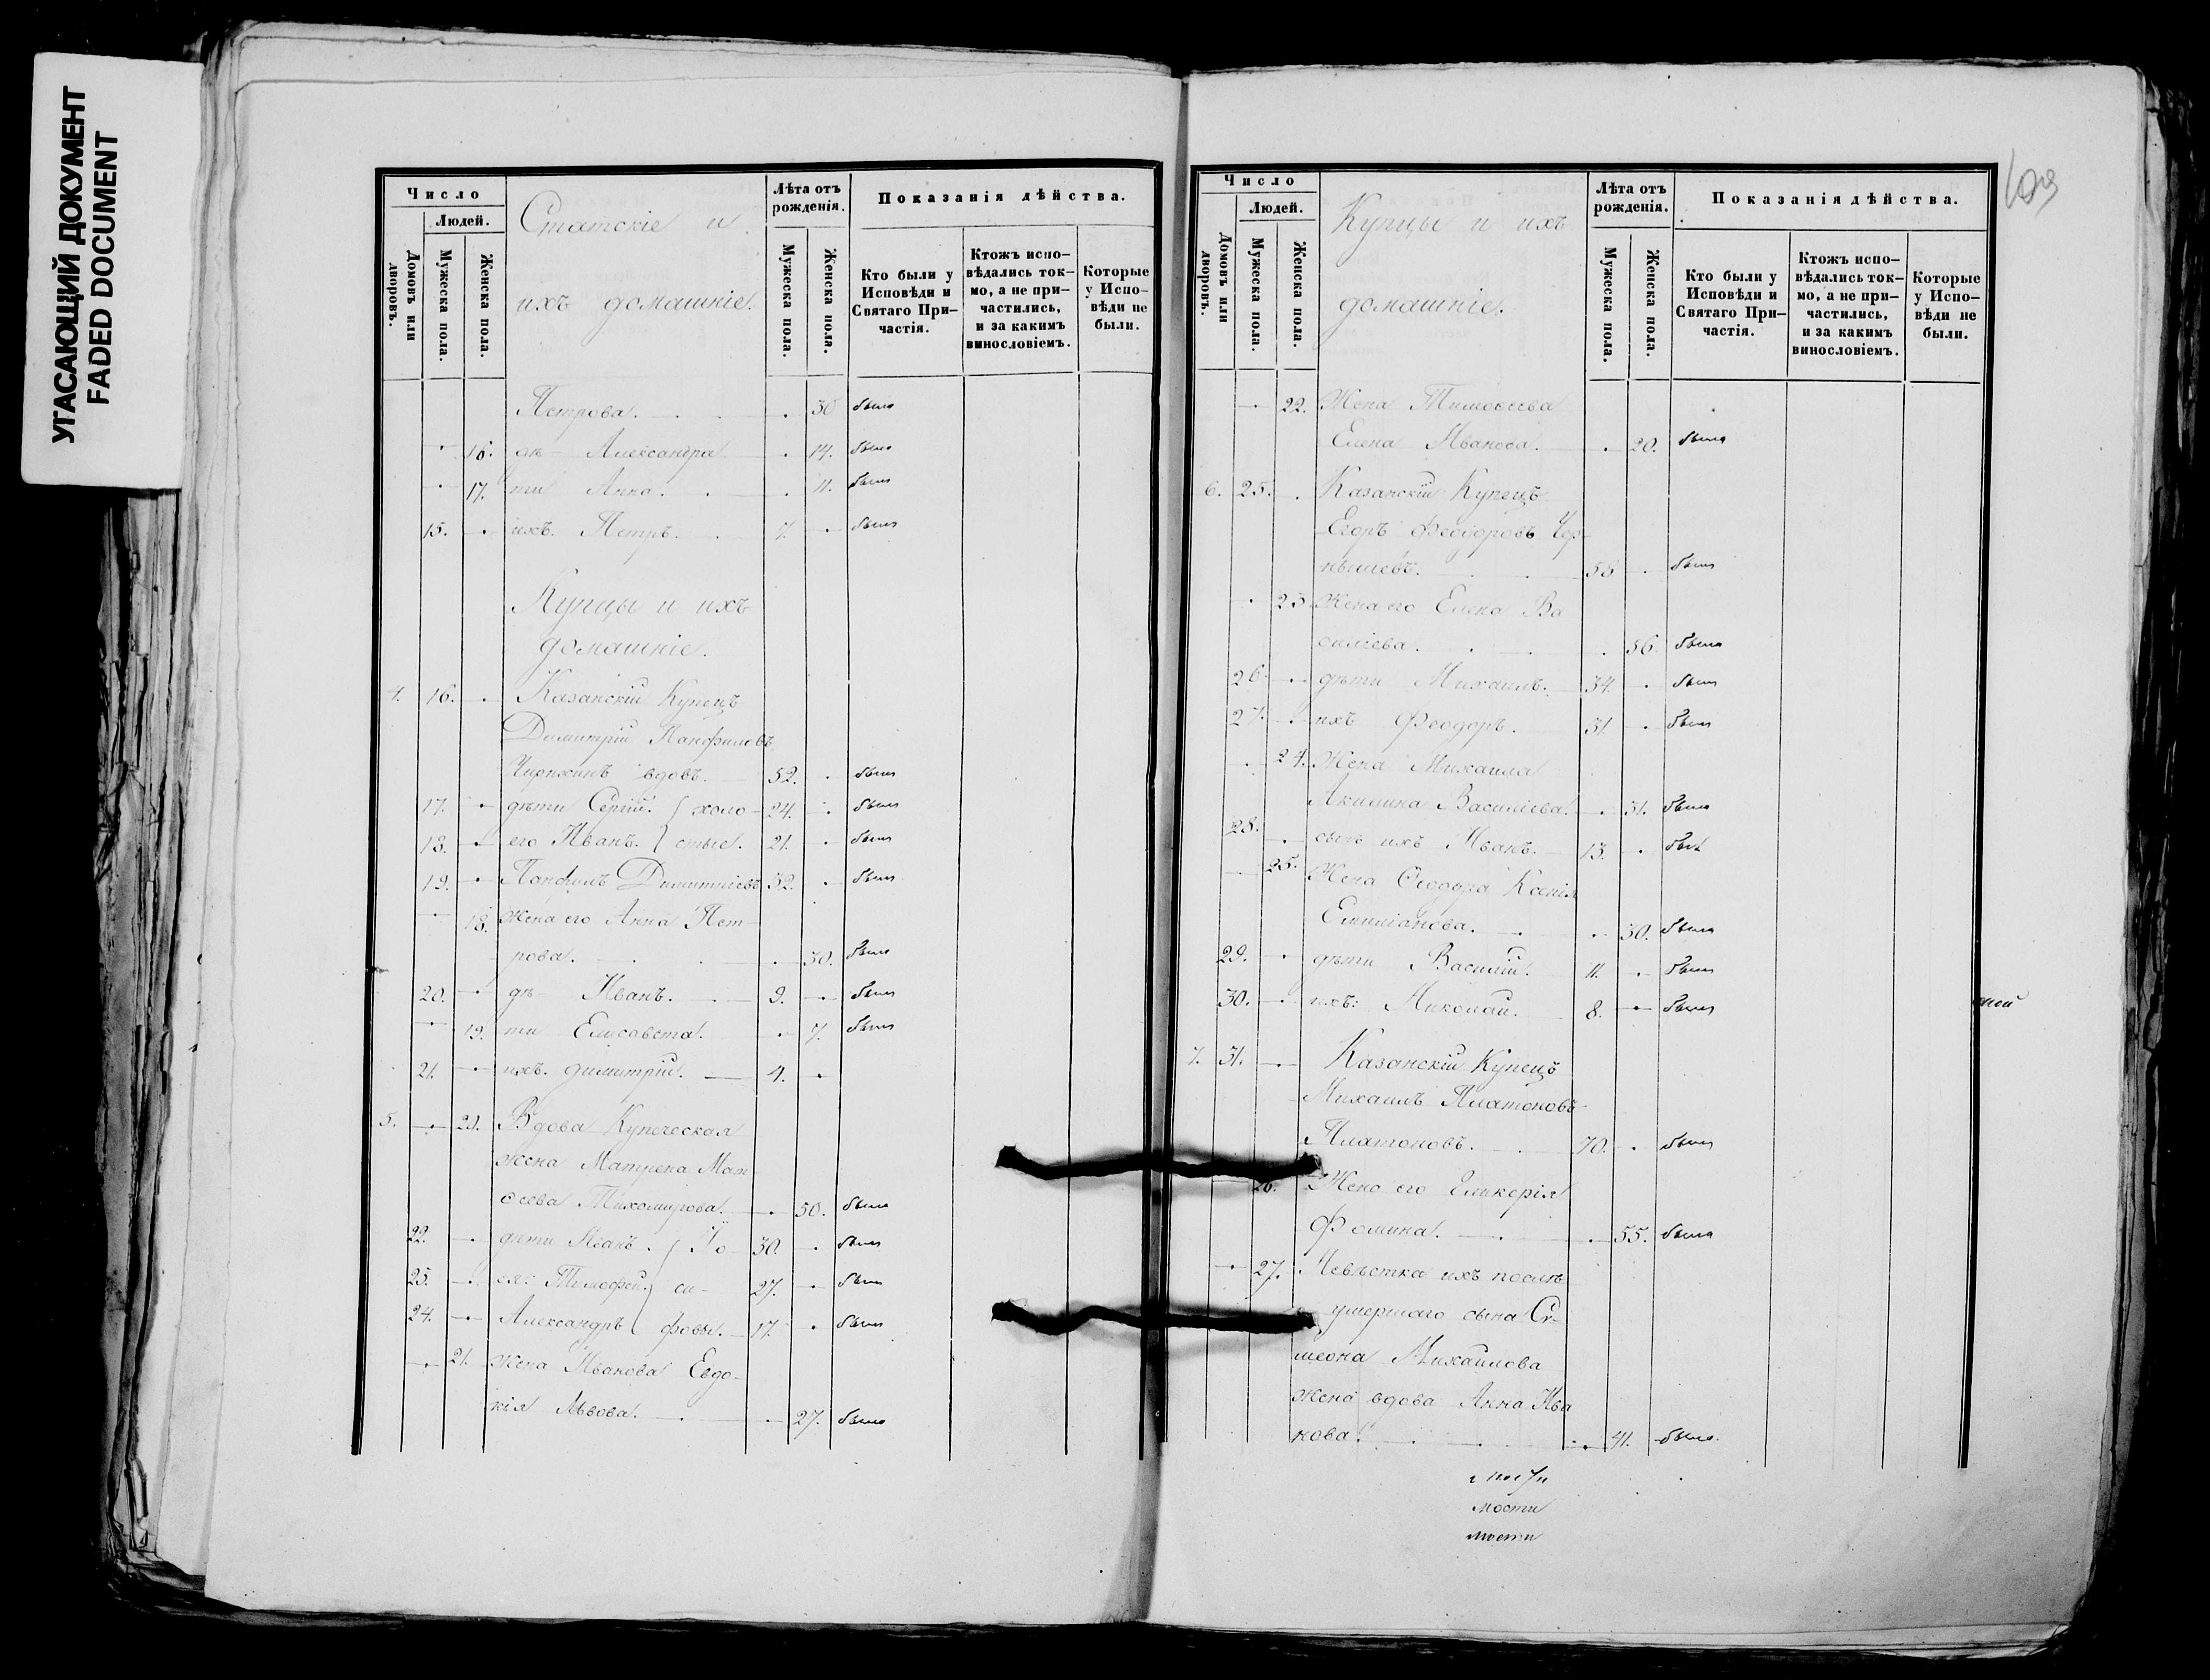 УГАСАЮЩИЙ ДОКУМЕНТ
FADED DOCUMENT
Число
Людей.
Домовъ или дворовъ.
Мужеска пола.
Женска пола.
Статскіе и
ихъ домашніе.
Лѣта отъ рожденія.
Мужеска пола.
Женска пола.
Показанія дѣйства.
Кто были у Исповѣди и Святаго При-
частія.
Ктожъ испо-
вѣдались ток-
мо, а не при-
частились,
и за какимъ
винословіемъ.
Которые
у Испо-
вѣди не
были.
Петрова. 30 была
16. дѣ- Александра 14. была
17. ти Анна. 11. была
15. ихъ. Петръ. 7. былъ
Купцы и ихъ
домашніе.
4. 16. Казанскій Купецъ
Димитрій Панфиловъ
вдовъ. 52. былъ
17. дѣти Сергій. холо- 24. былъ
18. его Иванъ. стые. 21. былъ
19. Панфилъ Димитріевъ 32. былъ
18. Жена его Анна Пет-
рова. 30. была
20. дѣ- Иванъ. 9. былъ
19. ти Елисавета. 7. была
21. ихъ. Димитрій. 4.
5. 20. Вдова Купеческая
жена Матрена Мат-
ѳеева Тихомирова. 50. была
22. дѣти Иванъ. Іо- 30. былъ
23. ея: Тимофей. си- 27. былъ
24. Александръ фовы. 17. былъ
21. Жена Иванова Евдо-
кія Львова. 27. была
109
Число
Людей.
Домовъ или дворовъ.
Мужеска пола.
Женска пола.
Купцы и ихъ
домашніе.
Лѣта отъ рожденія.
Мужеска пола.
Женска пола.
Показанія дѣйства.
Кто были у
Исповѣди и
Святаго При-
частія.
Ктожъ испо-
вѣдались ток-
мо, а не при-
частились,
и за какимъ
винословіемъ.
Которые
у Испо-
вѣди не
были.
22. Жена Тимоѳеева
Елена Иванова. 20. была
6. 25. Казанскій Купецъ
Егоръ Феодоровъ Чер-
нышевъ. 58 былъ
23. Жена его Елена Ва
силіева. 56. была
26. дѣти Михаилъ. 34. былъ
27. ихъ Феодоръ. 31. былъ
24. Жена Михаила
Акилина Василіева. 31. была
28. сынъ ихъ Иванъ. 13. былъ
25. Жена Ѳеодора Ксенія
Емиліанова. 30. была
29. дѣти Василій. 11. былъ
30. ихъ: Николай. 8. былъ
7. 31. Казанскій Купецъ
Михаилъ Платоновъ
Платоновъ. 70. былъ
26. Жена его Гликерія
Фомина. 55. была
27. Невѣстка ихъ послѣ
умершаго сына Си-
меона Михайлова
жена вдова Анна Ива
нова. 41. была.
мости
мости